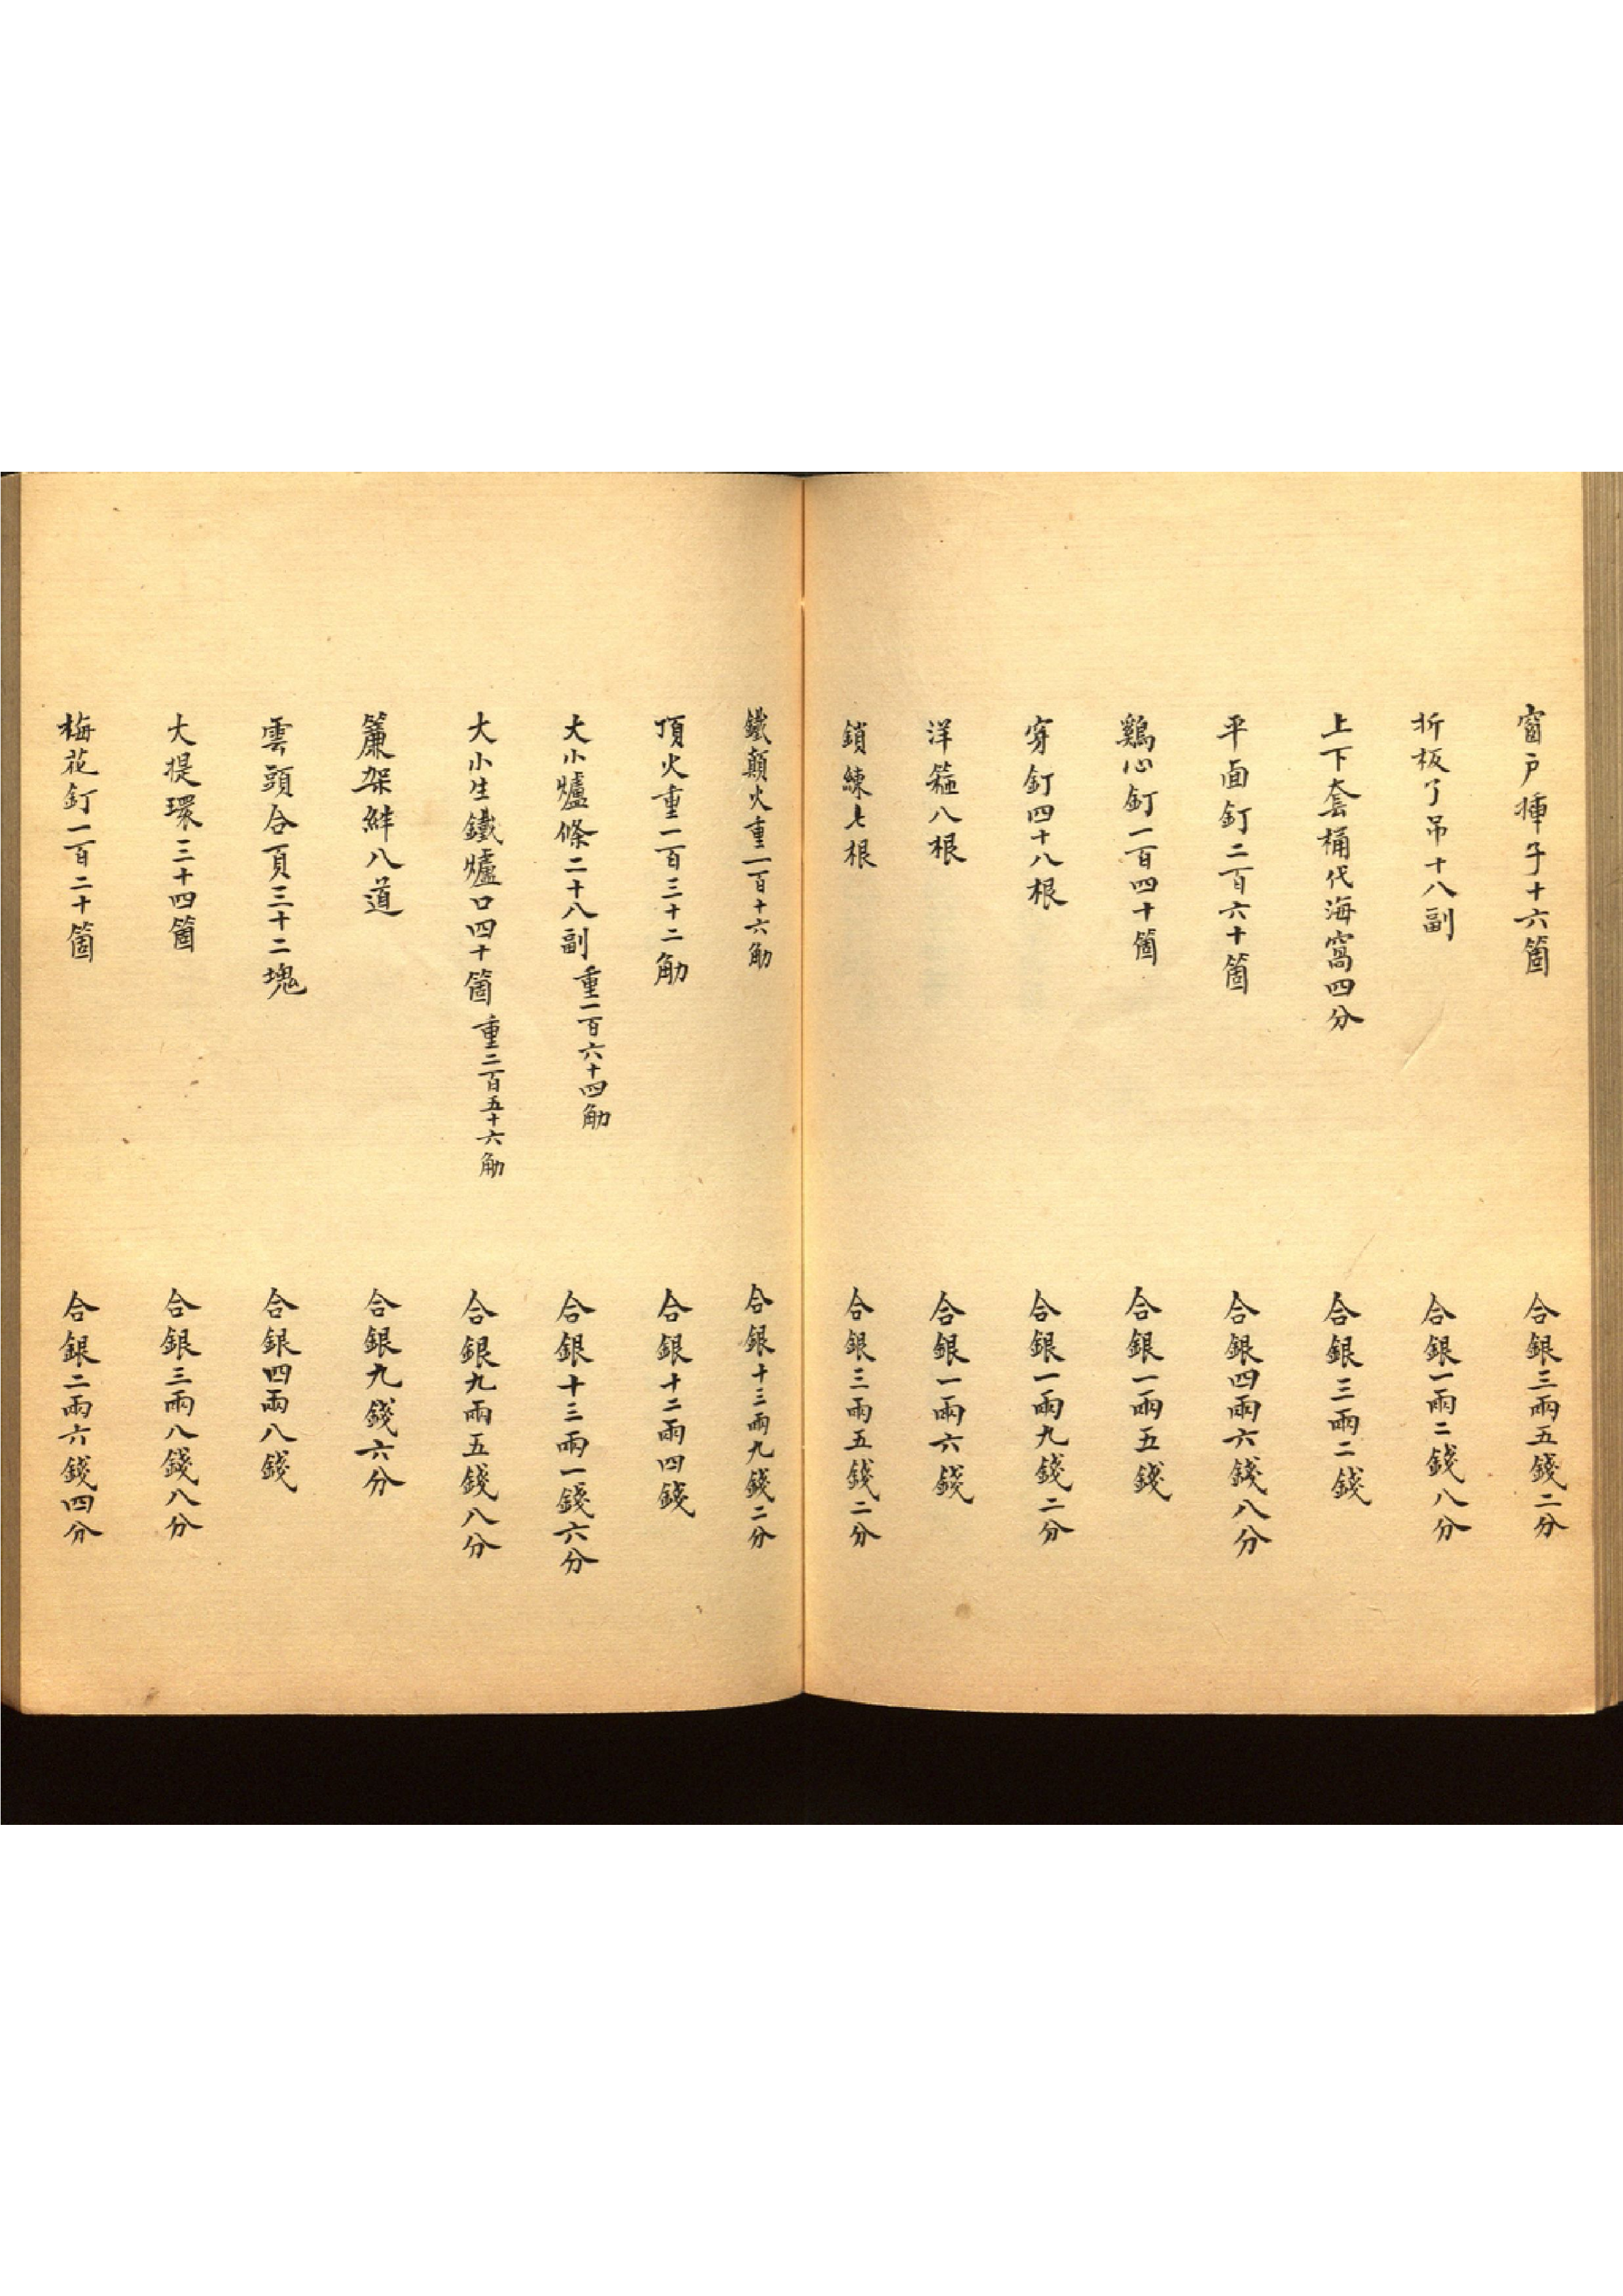 窗戶揷子十六箇 合銀三兩五錢二分
折板了吊十八副 合銀一兩二錢八分
上下套桶代海窩四分 合銀三兩二錢
平面釘二百六十箇 合銀四兩六錢八分
鷄心釘一百四十箇 合銀一兩五錢
穿釘四十八根 合銀一兩九錢二分
洋箍八根 合銀一兩六錢
鎖練七根 合銀三兩五錢二分
鐵顛火重一百十六觔 合銀十三兩九錢二分
頂火重一百三十二觔 合銀十二兩四錢
大小爐條二十八副重一百六十四觔 合銀十三兩一錢六分
大小生鐵爐口四十箇重二百五十六觔 合銀九兩五錢八分
簾架絆八道 合銀九錢六分
雲頭合頁三十二塊 合銀四兩八錢
大提環三十四箇 合銀三兩八錢八分
梅花釘一百二十箇 合銀二兩六錢四分